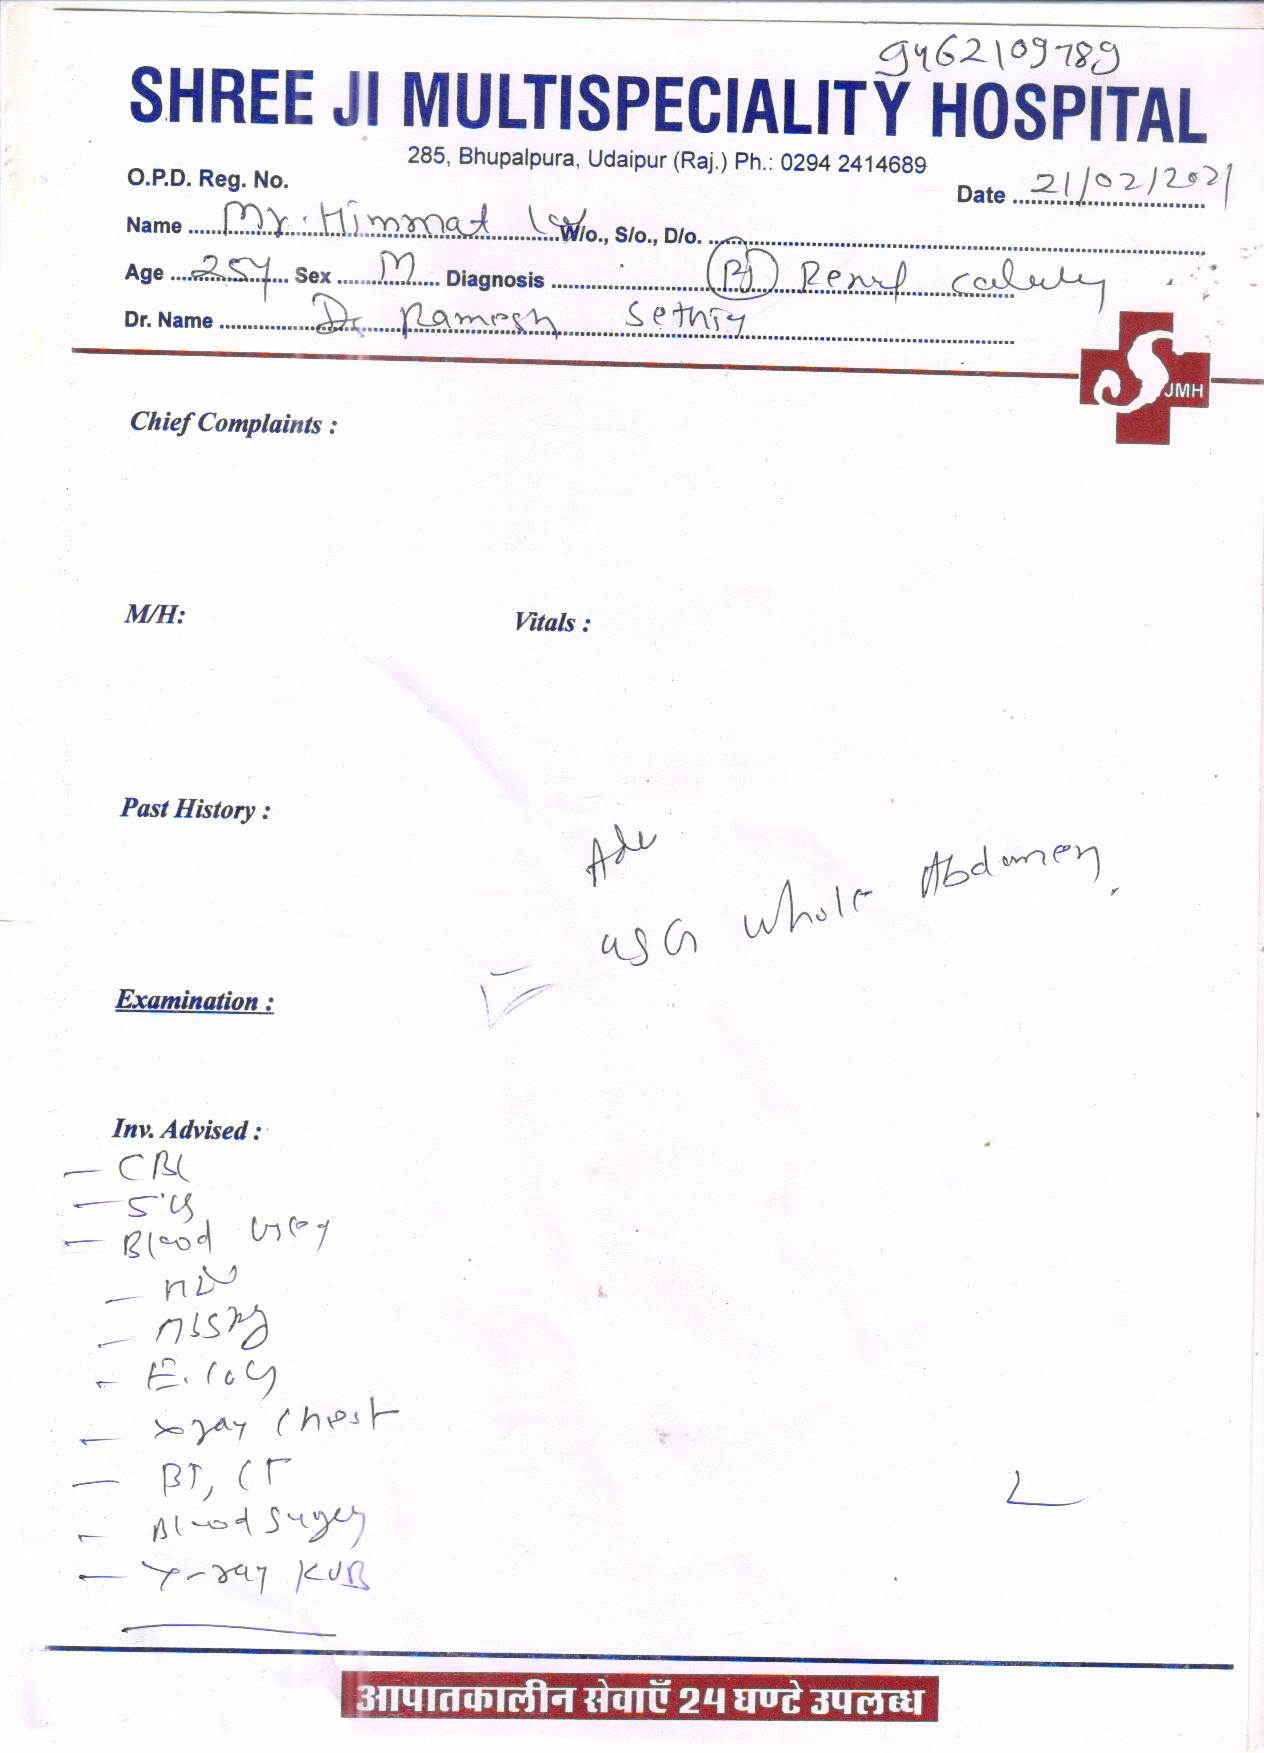 9462109789
SHREE JI MULTISPECIALITY HOSPITAL
285, Bhupalpura, Udaipur (Raj.) Ph.: 0294 2414689
O.P.D. Reg. No.
Date 21/02/2021
Name Mr. Himmat W/o., S/o., D/o.
Age 25Y Sex M Diagnosis Renal
Dr. Name Dr Ramesh
JMH
Chief Complaints :
M/H: Vitals :
Past History :
Adv
USG Whole Abdomen
Examination :
Inv. Advised :
- CBC
- Blood Urea
- X ray Chest
- BT, CT
- Blood Sugar
- X-ray KUB
आपातकालीन सेवाएँ 24 घण्टे उपलब्ध